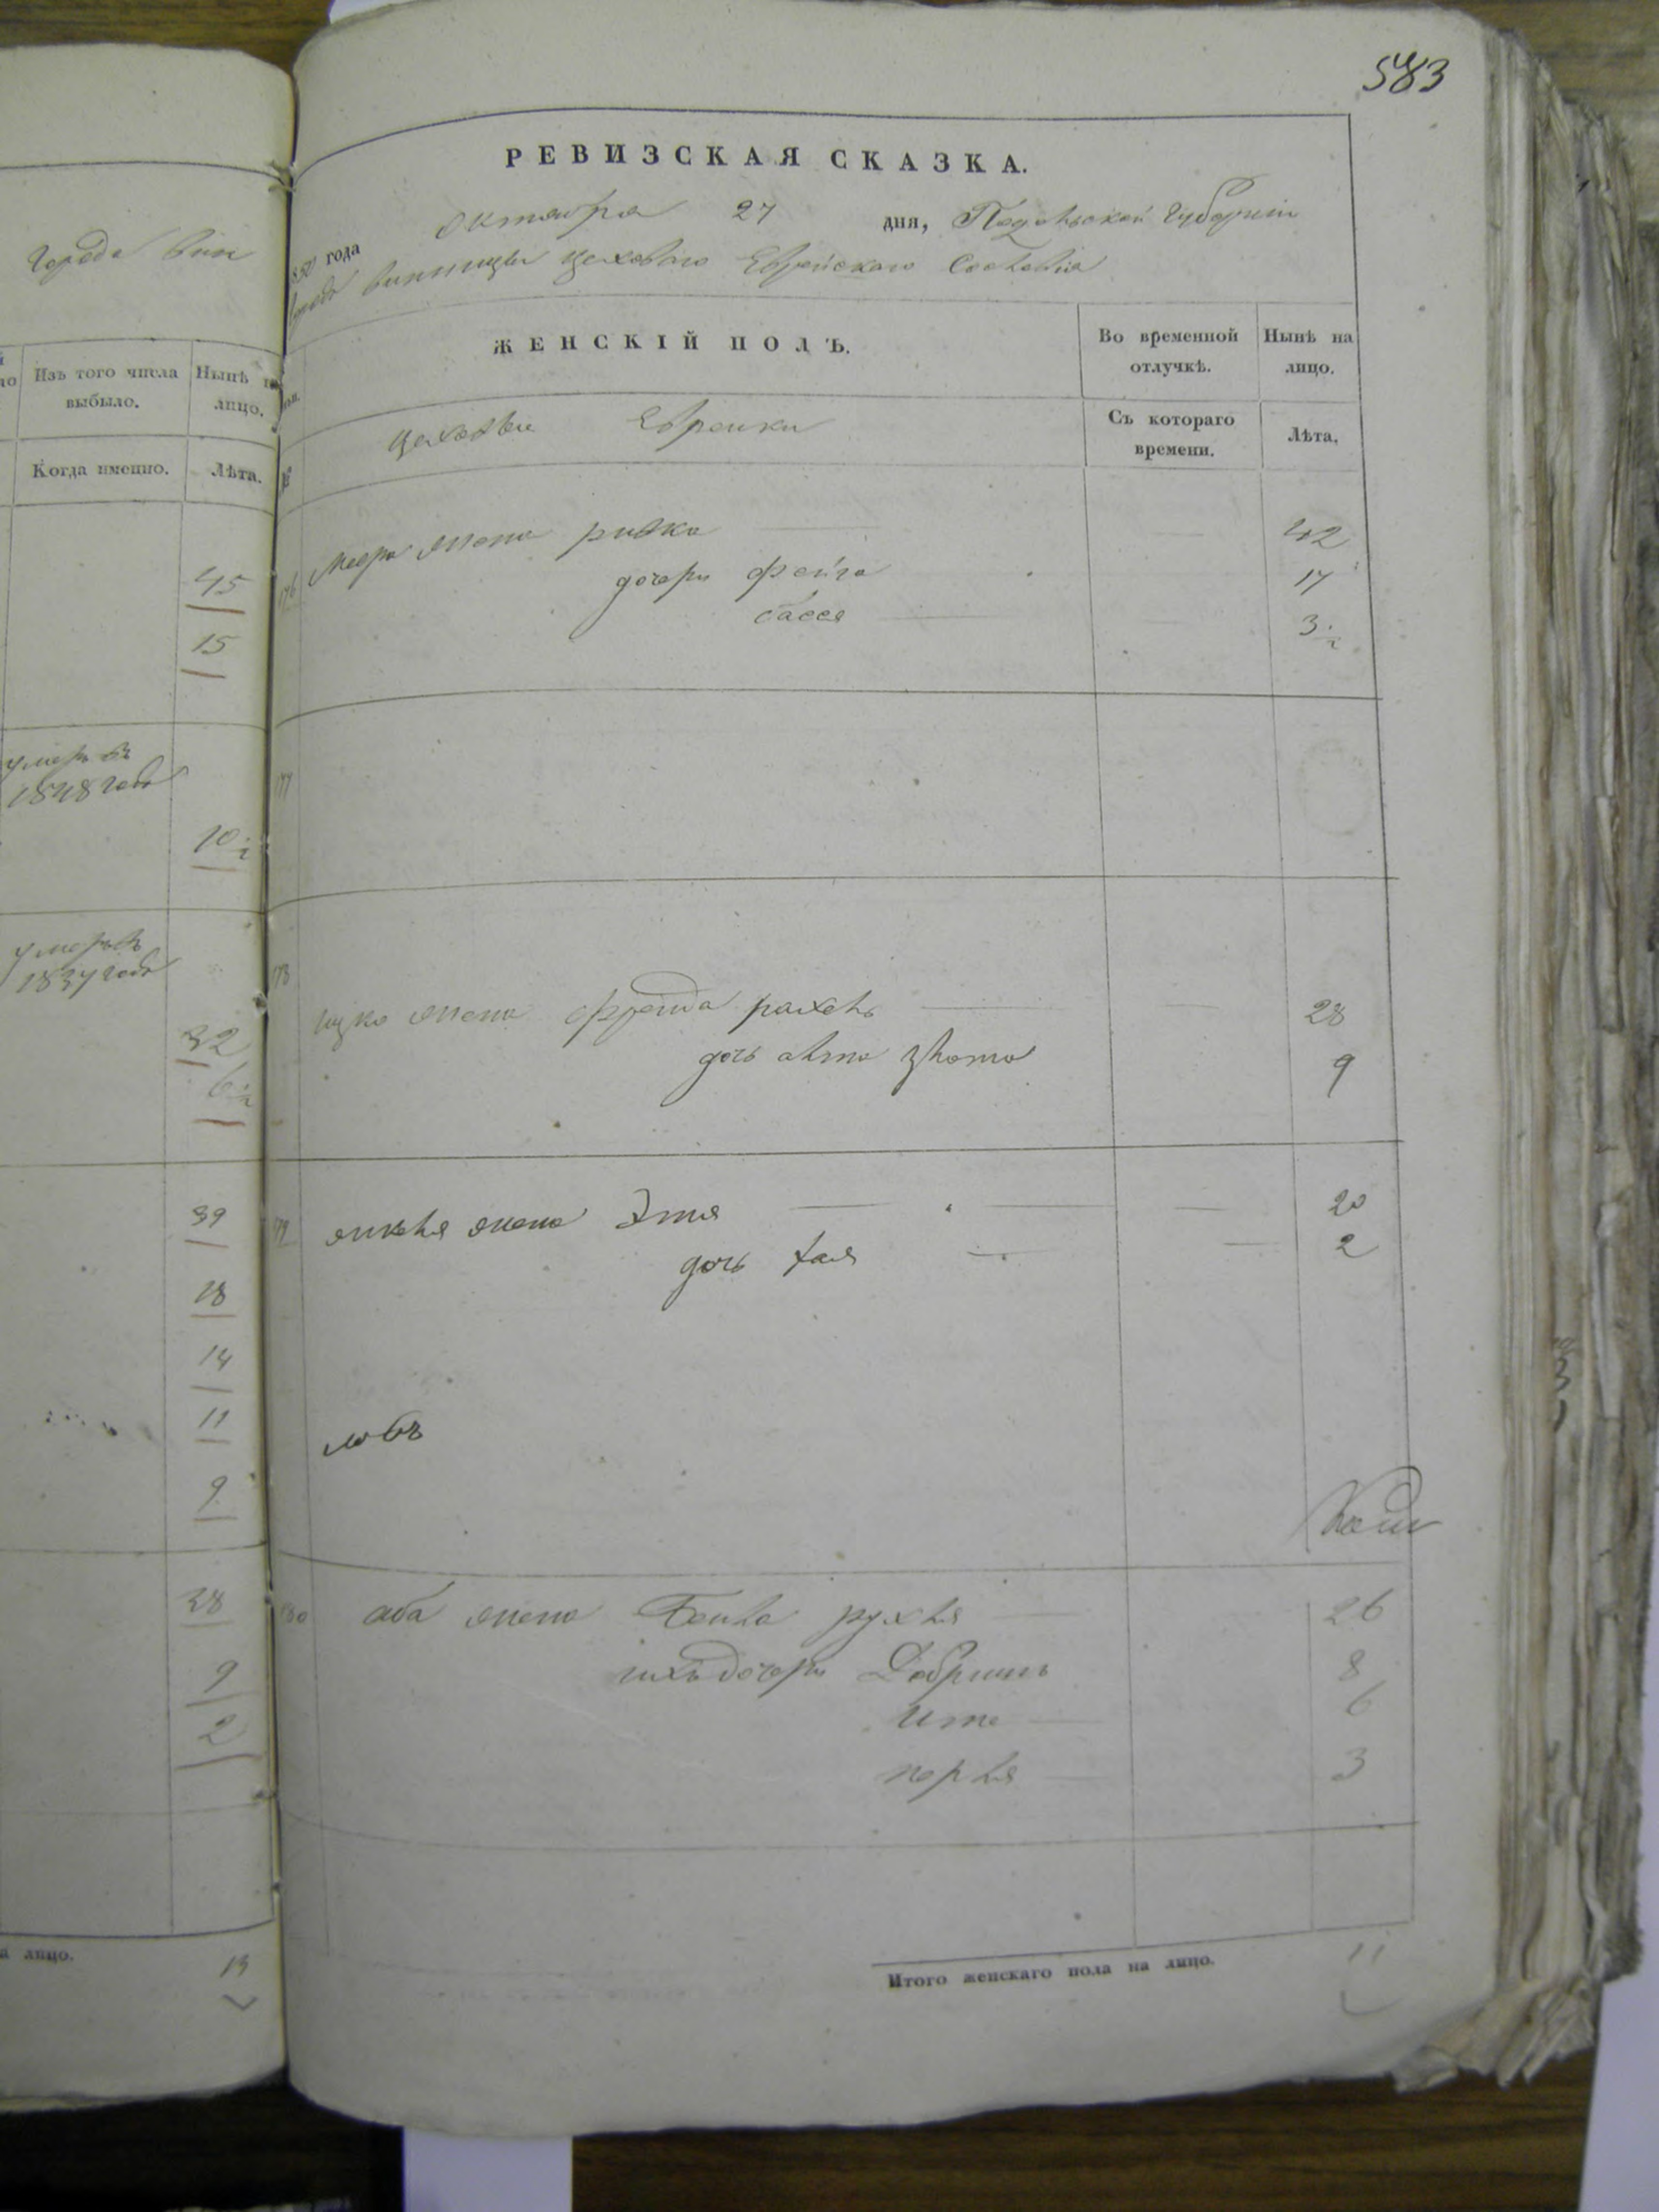 583
города Вин
Изъ того числа выбыло.
Нынѣ на лицо.
Когда именно.
Лѣта.
45
15
умеръ въ
1848 года
10 1/2
умеръ въ
1837 года
32
6 1/2
39
18
14
11
9
28
9
2
а лицо.
13
РЕВИЗСКАЯ СКАЗКА.
1850 года Октября 27 дня, Подольской Губернии
города Винницы Цеховаго Еврейскаго Сословія
ЖЕНСКІЙ ПОЛЪ.
Во временной отлучкѣ.
Нынѣ на лицо.
Цеховые Евреики
Съ котораго времени.
Лѣта.
176 Меера жена Ривка 42
дочери Фейга 17
Бася 3 1/2
177
178
Ицка жена Фрейда Рахель 28
дочь Алта Злота 9
179 Янкеля жена Этя 20
дочь Хая 2
180 Аба жена Бейла Рухля 26
ихъ дочери Добришь 8
Ита 6
Перля 3
Итого женскаго пола на лицо. 11